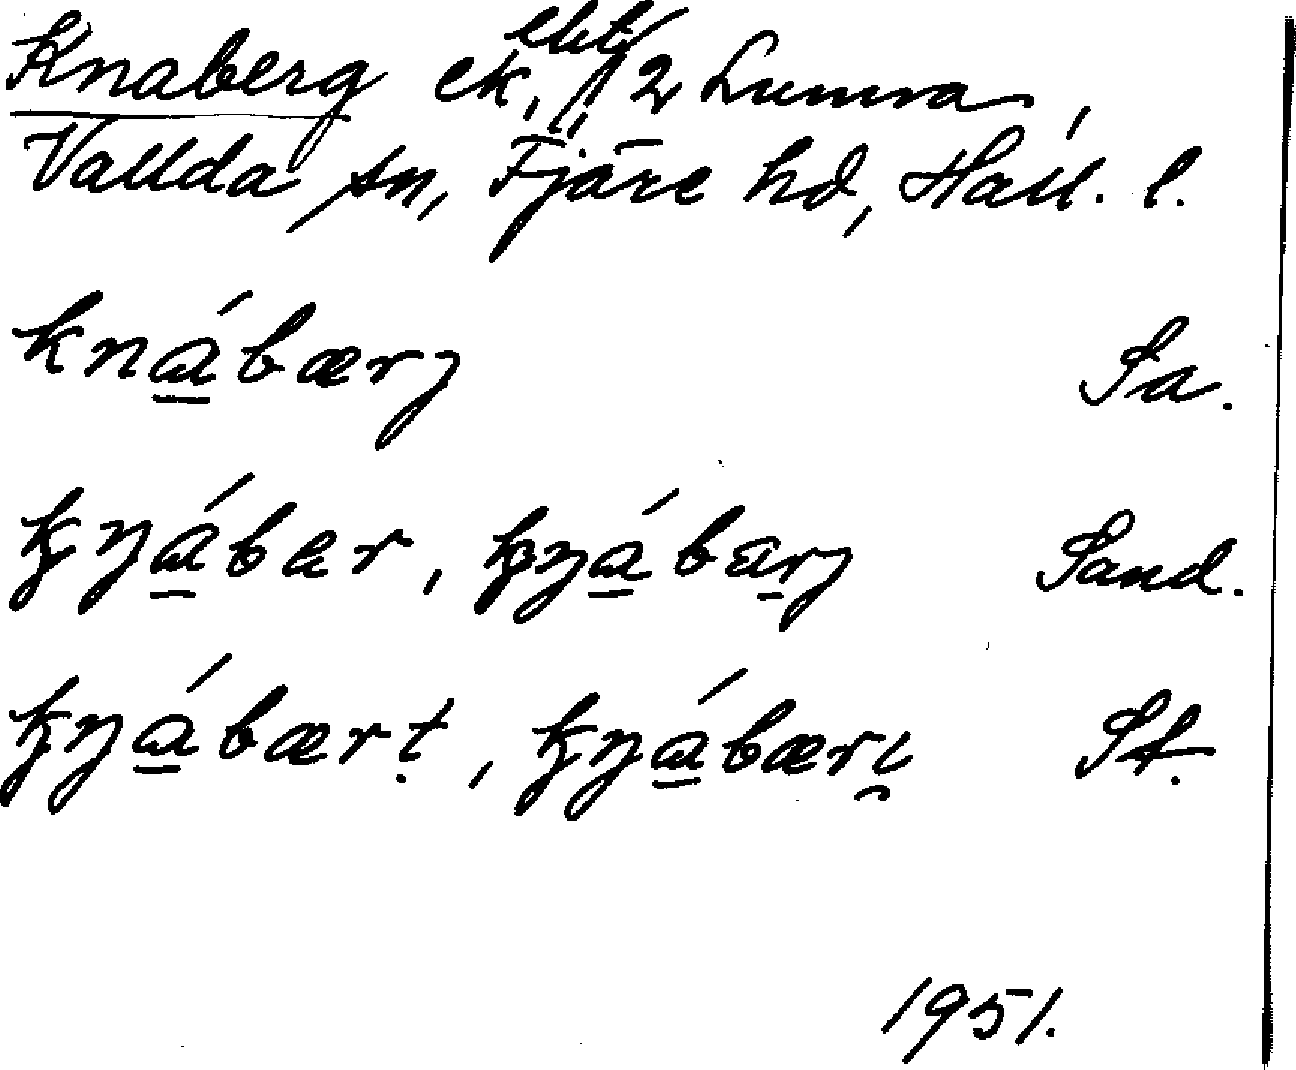 Knaberg ek, 2 Lunna,
Vallda sn, Fjäre hd, Hall. l.
kná̲bærj Sa.
kná̲bær, kná̲bærj Sand.
kná̲bært, kná̲bærı St.
1951.